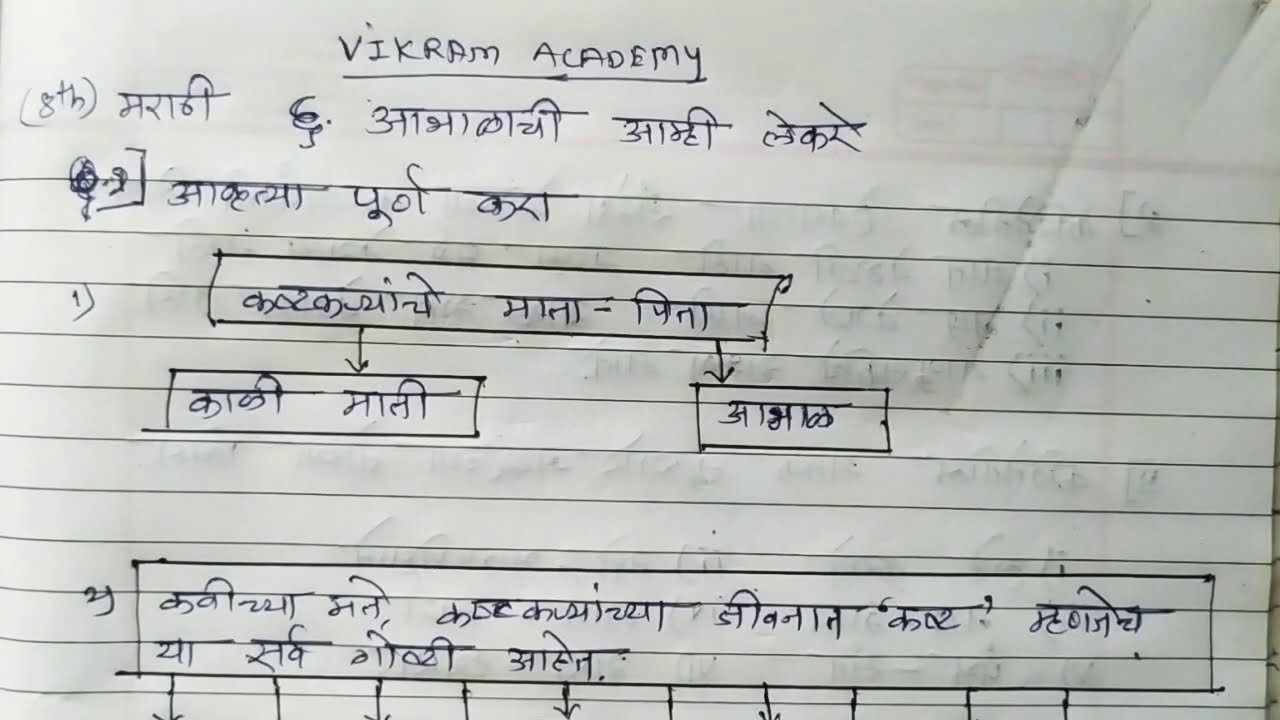 VIKRAM ACADEMY
(8th) मराठी ६. आभाळाची आम्ही लेकरे
आकृत्या पूर्ण करा
१) कष्टकऱ्यांचे माता - पिता
काळी माती
आभाळ
२) कवीच्या मते, कष्टकऱ्यांच्या जीवनात 'कष्ट' म्हणजेच
या सर्व गोष्टी आहेत.